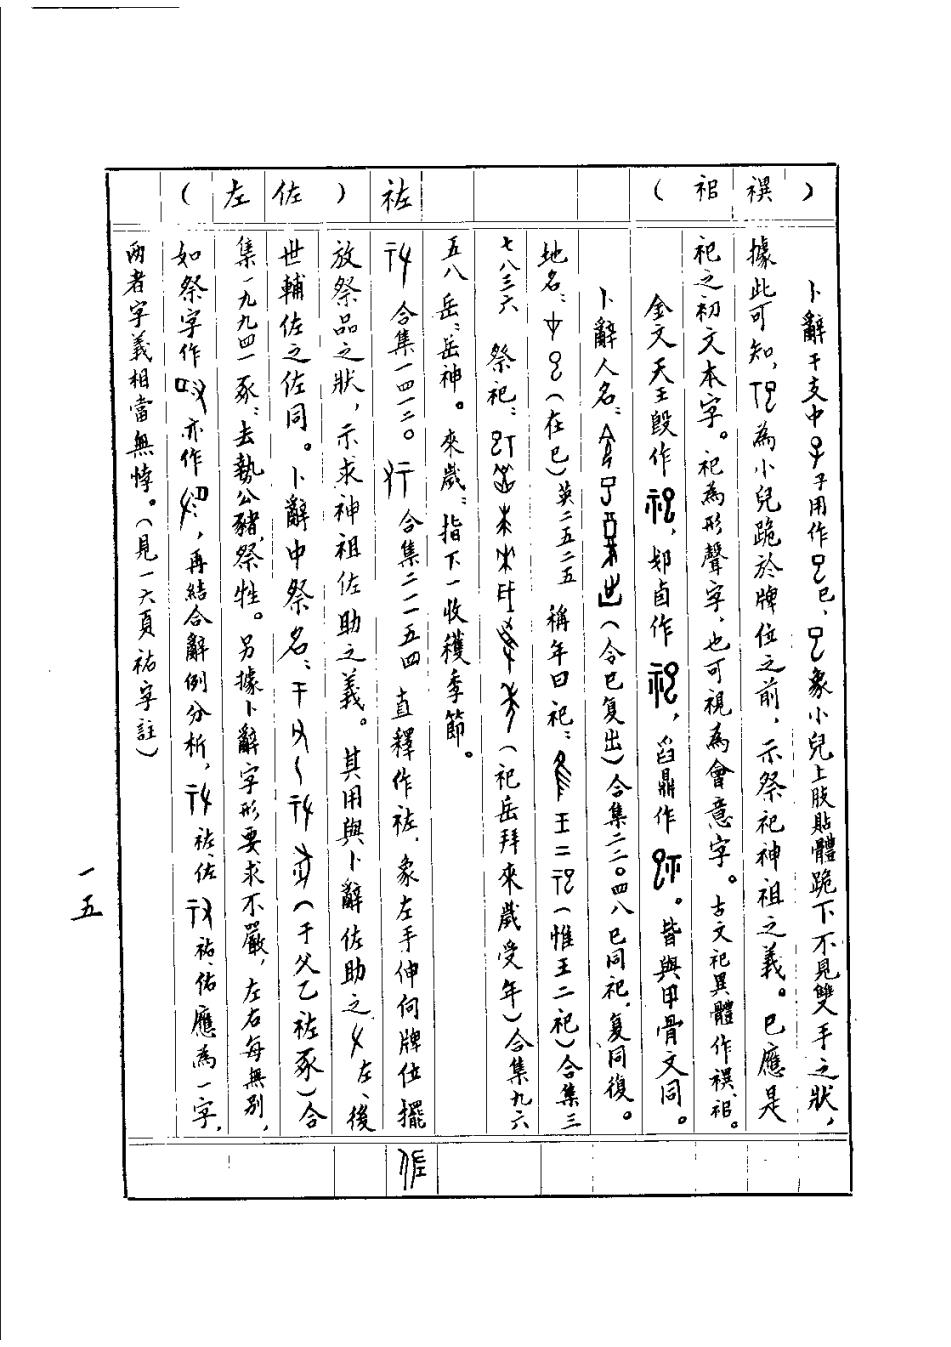 （祀禩）
卜辭干支中子用作巳，象小兒上肢貼體跪下不見雙手之狀，
據此可知，為小兒跪於牌位之前，示祭祀神祖之義。巳應是
祀之初文本字。祀為形聲字，也可視為會意字。古文祀異體作禩、。
金文天王𣪘作，邾卣作，鼎作。皆與甲骨文同。
卜辭人名：（令巳复出）合集二二〇四八巳同祀，复同復。
地名：（在巳）英二五二五 稱年曰祀：王二（惟王二祀）合集三
七八三六 祭祀：（祀岳拜來歲受年）合集九六
五八岳：岳神。來歲：指下一收穫季節。
祐（佐左）
合集一四一二〇。合集二一一五四 直釋作祐，象左手伸向牌位擺
放祭品之狀，示求神祖佐助之義。其用與卜辭佐助之左、後
世輔佐之佐同。卜辭中祭名：（于父乙祐豕）合
集一九九四一豕：去勢公豬，祭牲。另據卜辭字形要求不嚴，左右每無別，
如祭字作亦作，再結合辭例分析，佐祐、佑應為一字，
兩者字義相當無悖。（見一六頁祐字註）
一五